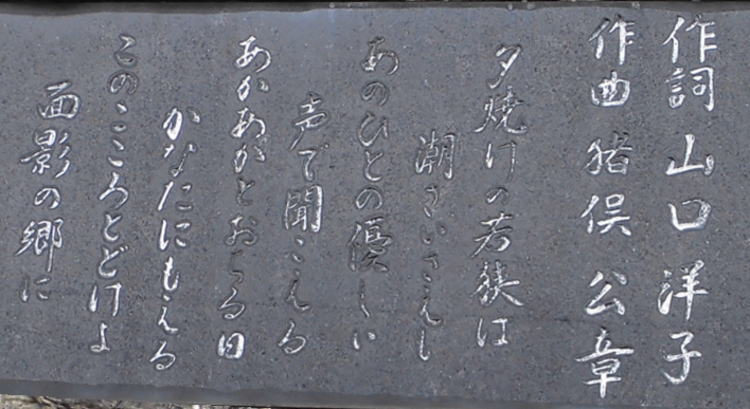 作詞 山口 洋子
作曲 猪俣 公章
夕焼けの若狭は
潮さいさえし
あのひとの優しい
声で聞こえる
あかあかとおちる日
かなたにもえる
このこころとどけよ
面影の郷に